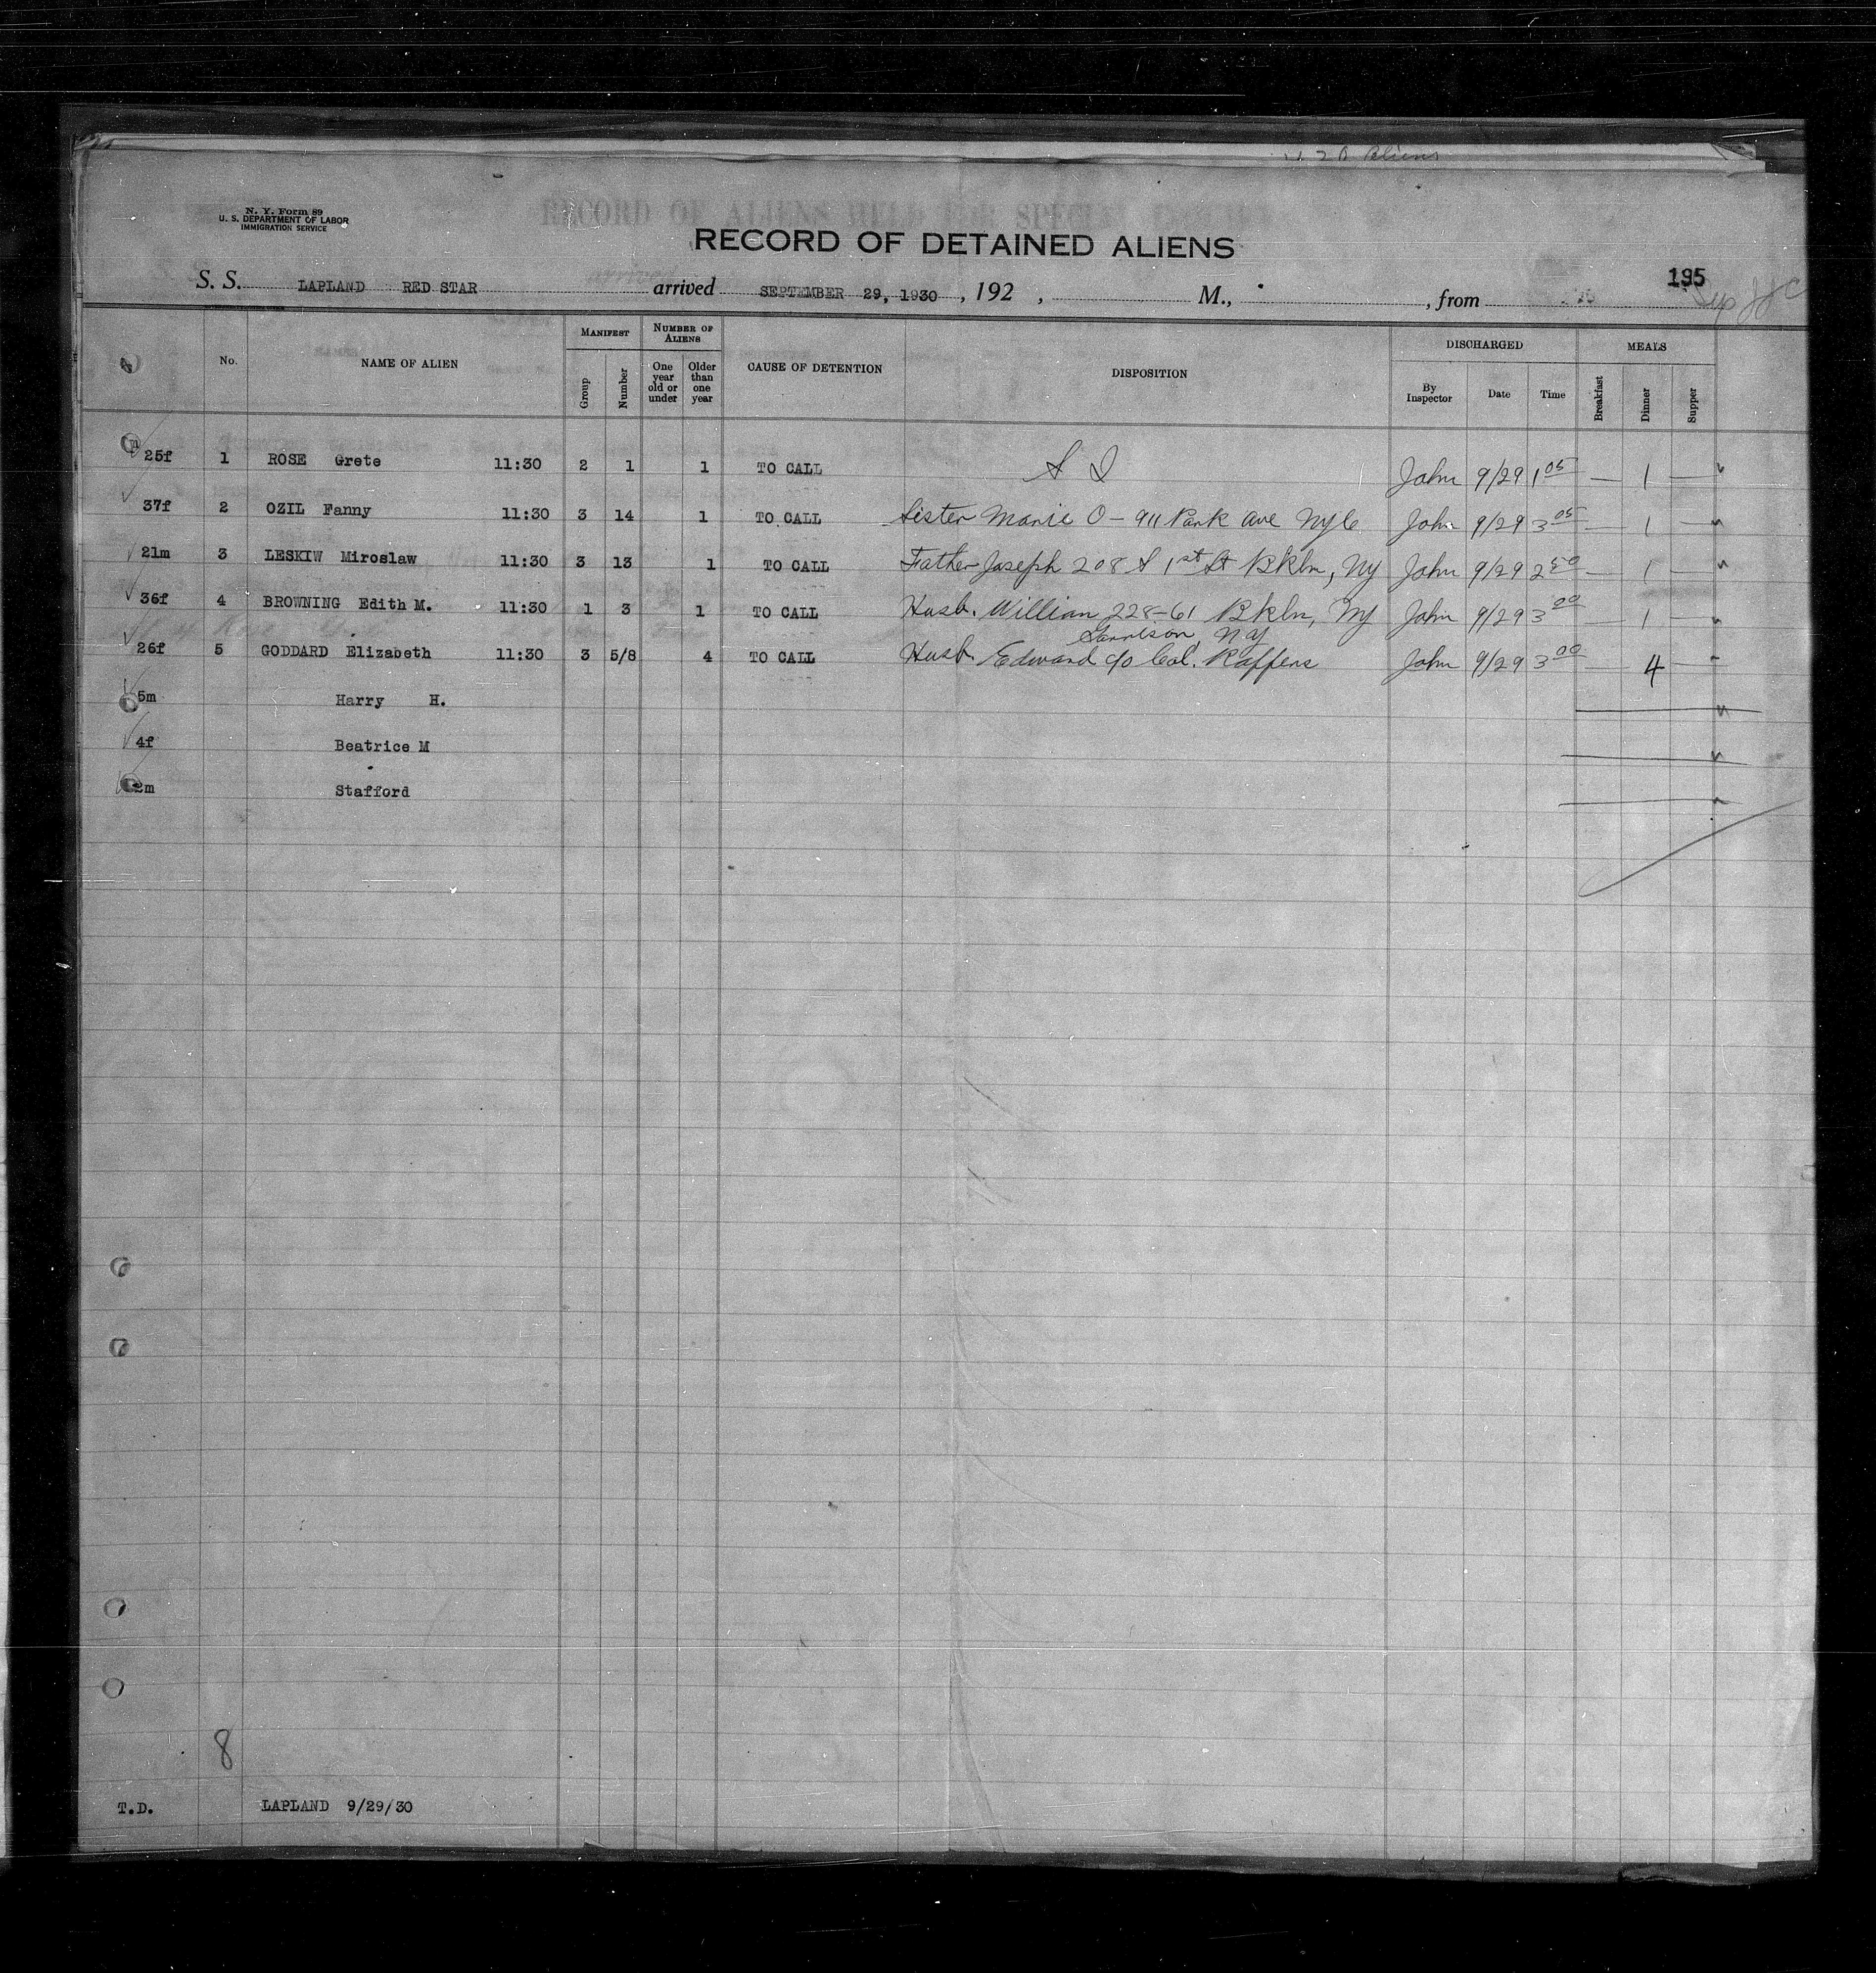 N. Y. Form 89
U. S. DEPARTMENT OF LABOR
IMMIGRATION SERVICE
RECORD OF DETAINED ALIENS
195
S. S. LAPLAND RED STAR arrived SEPTEMBER 29, 1930, 192 , M., , from
No. NAME OF ALIEN MANIFEST Group Number NUMBER OF ALIENS One year old or under Older than one year CAUSE OF DETENTION DISPOSITION DISCHARGED By Inspector Date Time MEALS Breakfast Dinner Supper
25f 1 ROSE Grete 11:30 2 1 1 TO CALL S I John 9/29 1 05 — 1 —
37f 2 OZIL Fanny 11:30 3 14 1 TO CALL Sister Marie O - 911 Park Ave NyC John 9/29 3 05 — 1 —
21m 3 LESKIW Miroslaw 11:30 3 13 1 TO CALL Father Joseph 208 S 1st St Bkln, Ny John 9/29 2 50 — 1 —
36f 4 BROWNING Edith M. 11:30 1 3 1 TO CALL Husb. William 228-61 Bkln, Ny John 9/29 3 00 — 1 —
Garrison, N.Y
26f 5 GODDARD Elizabeth 11:30 3 5/8 4 TO CALL Husb. Edward c/o Col. John 9/29 3 00 — 4 —
5m Harry H.
4f Beatrice M
2m Stafford
8
T.D. LAPLAND 9/29/30